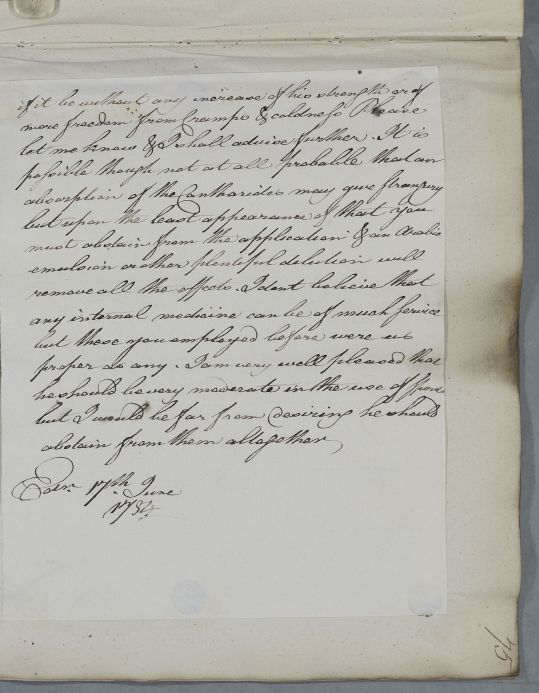 if it be without any increase of his strength or of
more freedom from Cramps & coldness Please
let me know & I shall advise further. It is
possible though not at all probable that an
absorption of the Cantharides may give strangury
but upon the least appearance of that you
must abstain from the application & an Arabic
emulsion or other plentiful dilution will
remove all the effects. I dont believe that
any internal medicine can be of much service
but these you employed before were as
proper as any. I am very well pleased that
he should be very moderate in the use of
but I would be far from desiring he should
abstain from them altogether
Edinr. 17th June